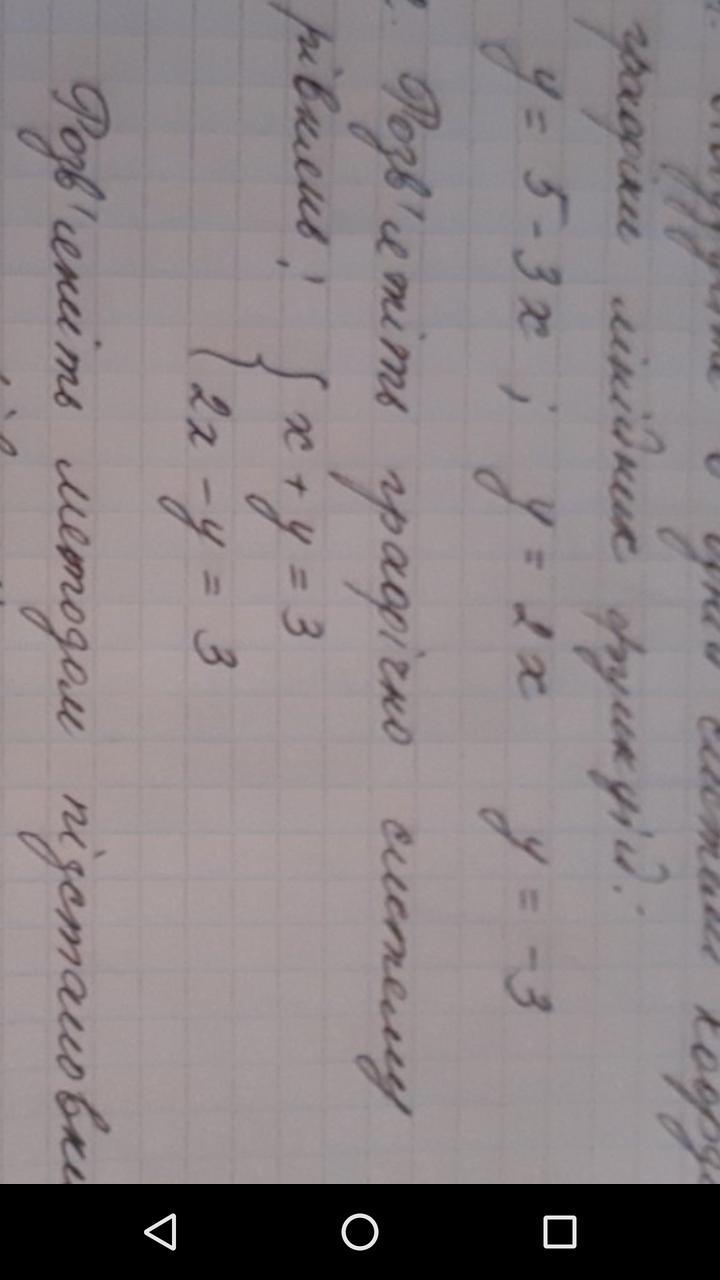 в одній системі коорд
графіки лінійних функцій:
y = 5 - 3x ; y = 2x y = -3
2. Розв'яжіть графічно систему
рівнень:
{ x + y = 3
2x - y = 3
Розв'яжіть методом підстановки